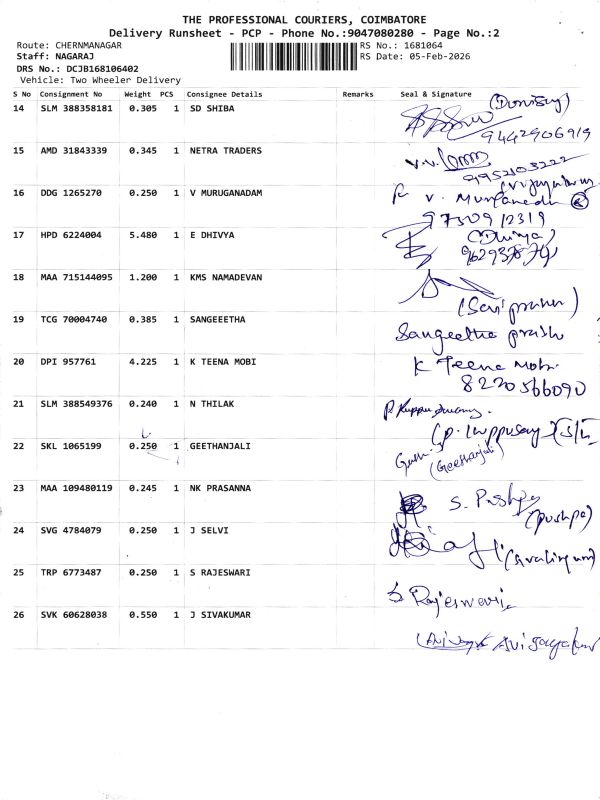 THE PROFESSIONAL COURIERS, COIMBATORE
Delivery Runsheet - PCP - Phone No.:9047080280 - Page No.:2
Route: CHERNMANAGAR RS No.: 1681064
Staff: NAGARAJ RS Date: 05-Feb-2026
DRS No.: DCJB168106402
Vehicle: Two Wheeler Delivery
S No Consignment No Weight PCS Consignee Details Remarks Seal & Signature
14 SLM 388358181 0.305 1 SD SHIBA
9442906919
15 AMD 31843339 0.345 1 NETRA TRADERS
16 DDG 1265270 0.250 1 V MURUGANADAM
9750912319
17 HPD 6224004 5.480 1 E DHIVYA
18 MAA 715144095 1.200 1 KMS NAMADEVAN
19 TCG 70004740 0.385 1 SANGEEETHA
Sangeetha
20 DPI 957761 4.225 1 K TEENA MOBI K Teena Mobi
8220566090
21 SLM 388549376 0.240 1 N THILAK
22 SKL 1065199 0.250 1 GEETHANJALI
(Geethanjali)
23 MAA 109480119 0.245 1 NK PRASANNA S. Pushpa
(pushpa)
24 SVG 4784079 0.250 1 J SELVI
25 TRP 6773487 0.250 1 S RAJESWARI S Rajeswari
26 SVK 60628038 0.550 1 J SIVAKUMAR